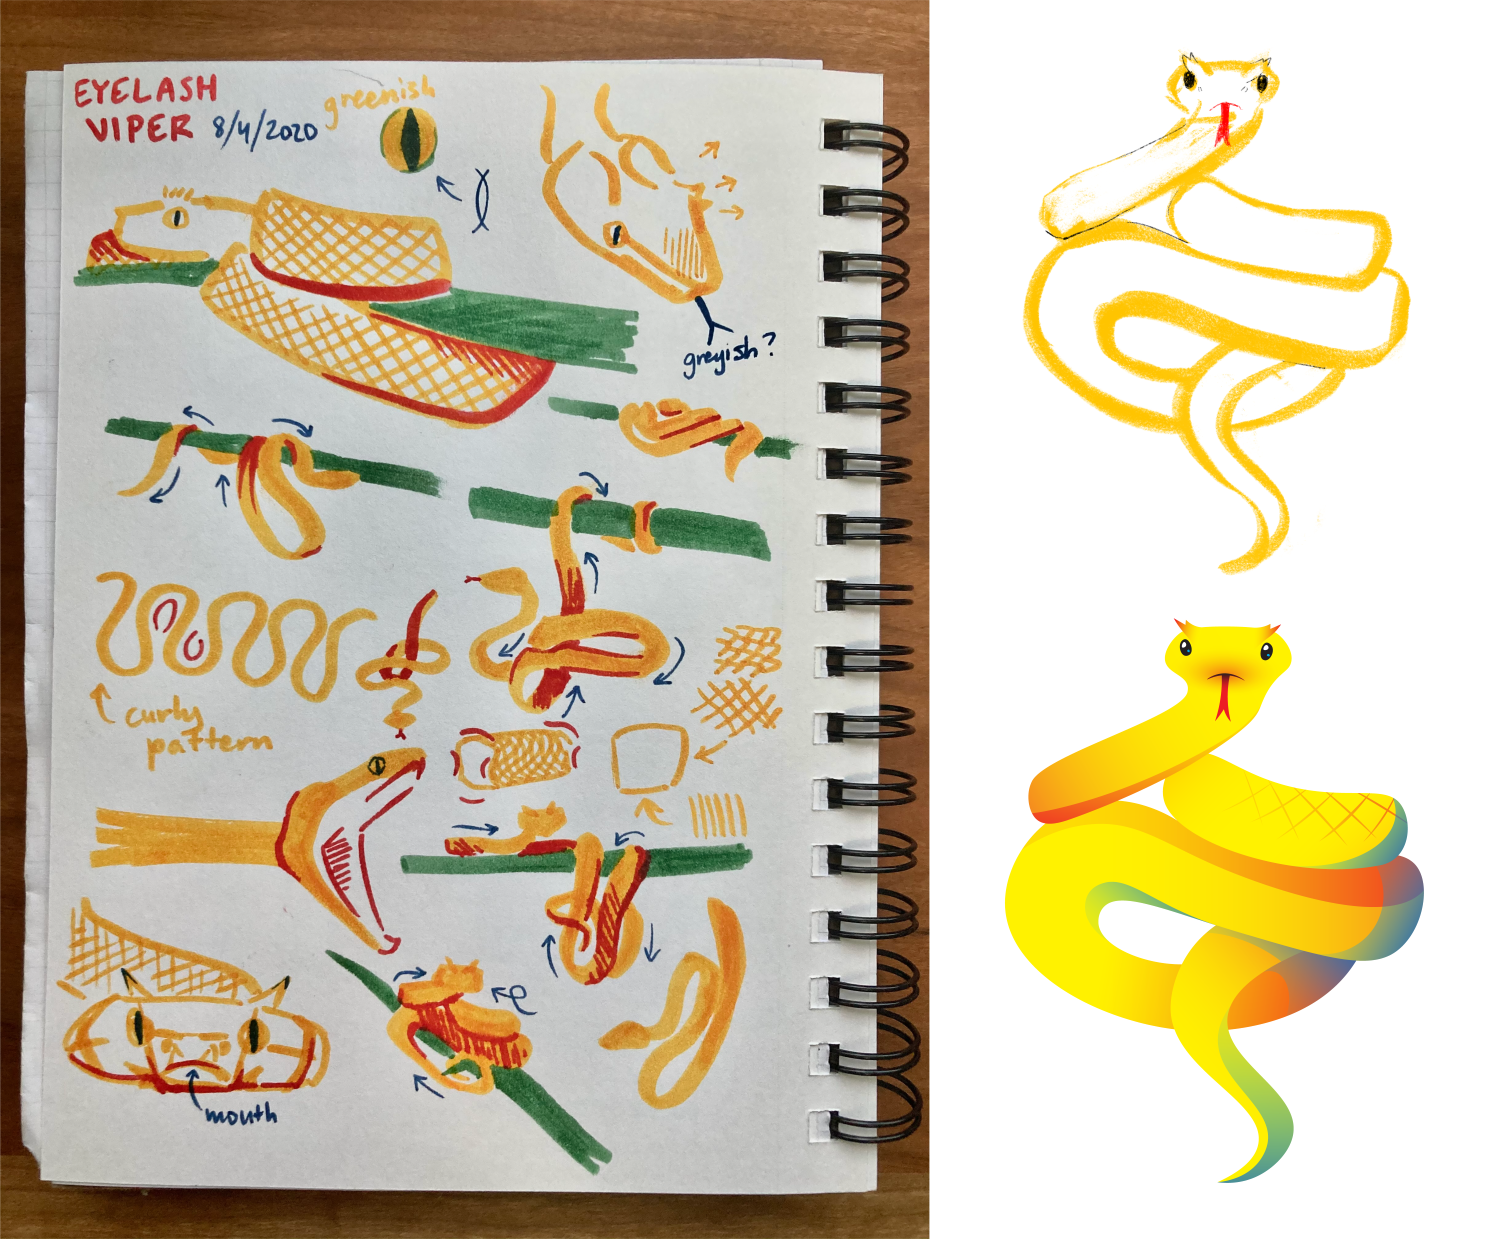 EYELASH
VIPER 8/4/2020
greenish
greyish?
curly
pattern
mouth